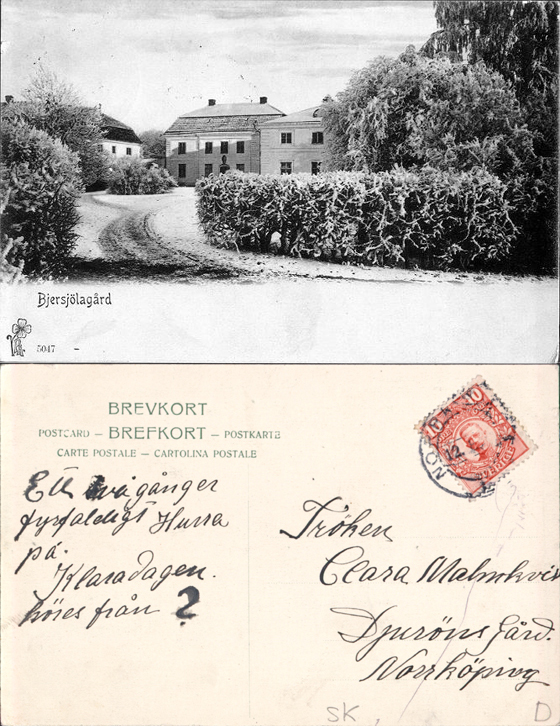 Bjersjölagård
5047 -
BREVKORT
POSTCARD – BREFKORT – POSTKARTE
CARTE POSTALE – CARTOLINA POSTALE
10
SVERIGE
Ett två gånger
fyrfaldigt Hurra
på
Klaradagen.
höres från ?
Fröken
Clara Malmkvis
Djuröns Gård.
Norrköping
SK
D